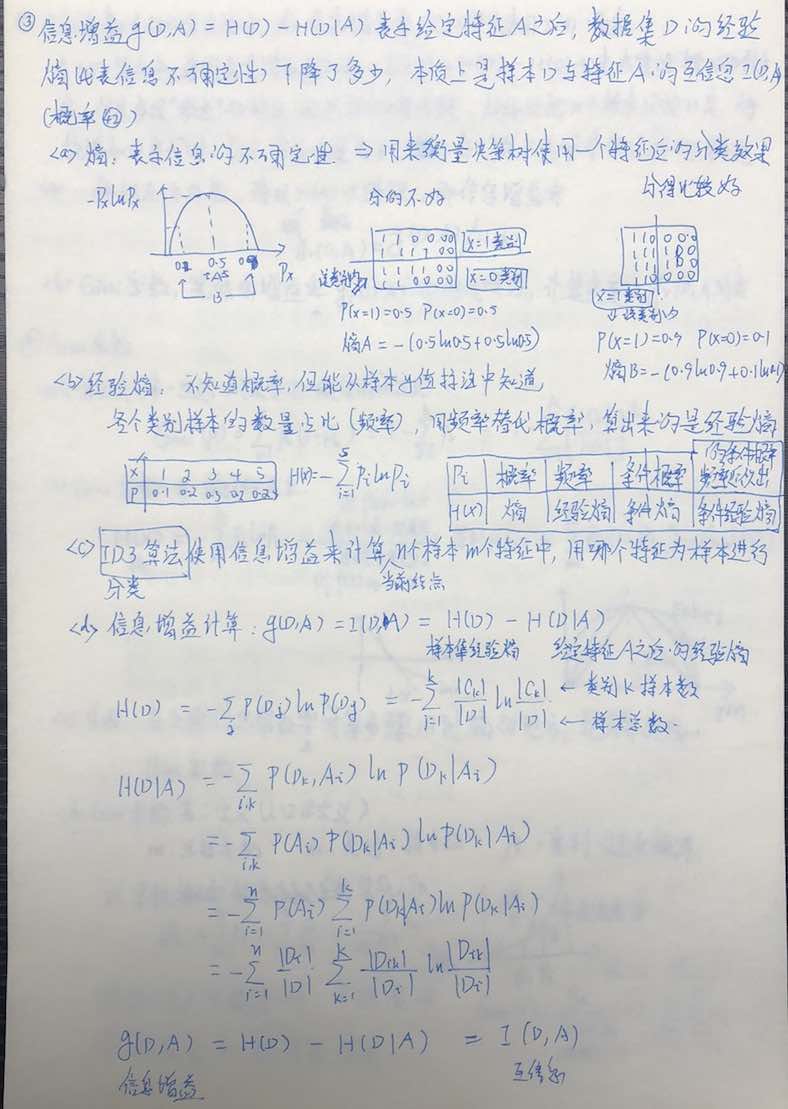 ③ 信息增益 g(D,A) = H(D) - H(D|A) 表示给定特征A之后，数据集D的经验
熵(代表信息不确定性) 下降了多少，本质上是样本D与特征A的互信息 I(D,A)
(概率④)
<a> 熵：表示信息的不确定性 ⇒ 用来衡量决策树使用一个特征后的分类效果
分的不好
分得比较好
-PxlnPx
0.5
A
B
Px
1 1 0 0 0 0
1 1 1 0 0
1 1 1 0 0
1 0 0 0 0
X=1类别
X=0类别
P(x=1)=0.5 P(x=0)=0.5
熵A = -(0.5ln0.5+0.5ln0.5)
X=1类别
P(x=1)=0.9 P(x=0)=0.1
熵B=-(0.9ln0.9+0.1ln0.1)
<b> 经验熵：不知道概率，但能从样本
各个类别样本的数量占比(频率)，用频率替代概率，算出来的是经验熵
X 1 2 3 4 5
P 0.1 0.2 0.3 0.2 0.2
H(x)=-∑_{i=1}^{5} Pi ln Pi
Pi 概率 频率 条件概率
H(x) 熵 经验熵 条件熵 条件经验熵
<c> ID3算法使用信息增益来计算，n个样本m个特征中，用哪个特征为样本进行
当前结点
分类
<d> 信息增益计算：g(D,A) = I(D,A) = H(D) - H(D|A)
样本集经验熵 给定特征A之后的经验熵
H(D) = -∑_j P(Dj) ln P(Dj) = -∑_{j=1}^{k} |Ck|/|D| ln |Ck|/|D| ← 类别K样本数
← 样本总数
H(D|A) = -∑_{i,k} P(Dk,Ai) ln P(Dk|Ai)
= -∑_{i,k} P(Ai) P(Dk|Ai) ln P(Dk|Ai)
= -∑_{i=1}^{n} P(Ai) ∑_{i=1}^{k} P(Dk|Ai) ln P(Dk|Ai)
= -∑_{i=1}^{n} |Di|/|D| ∑_{k=1}^{k} |Dik|/|Di| ln |Dik|/|Di|
g(D,A) = H(D) - H(D|A) = I(D,A)
信息增益 互信息